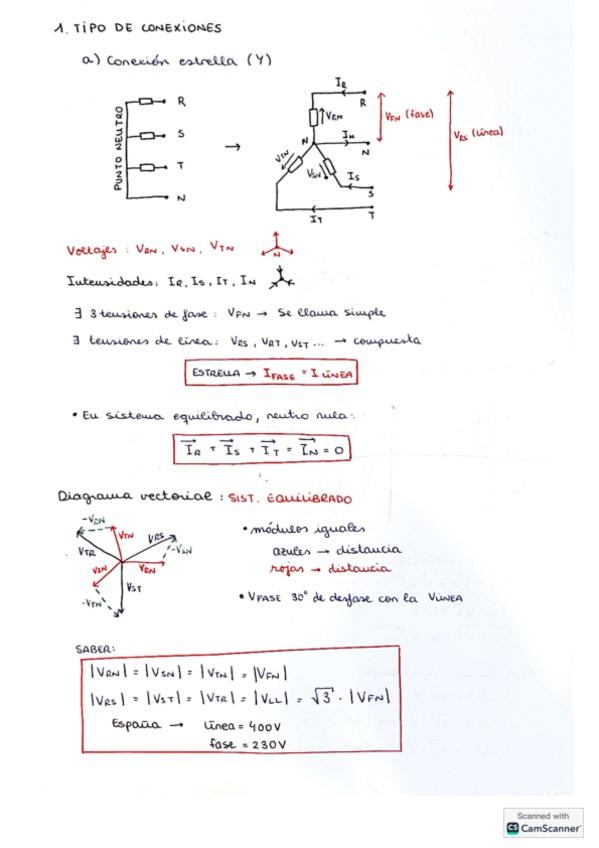 1. TIPO DE CONEXIONES
a) Conexión estrella (Y)
PUNTO NEUTRO
R
S
T
N
→
IR
R
VRN
N
IN
N
VTN
VSN
IS
S
IT
T
VFN (fase)
VRS (línea)
Voltajes: VRN, VSN, VTN
N
Intensidades: IR, IS, IT, IN
∃ 3 tensiones de fase: VFN → Se llama simple
∃ tensiones de línea: VRS, VRT, VST ... → compuesta
ESTRELLA → IFASE = I LÍNEA
• En sistema equilibrado, neutro nula:
IR + IS + IT = IN = 0
Diagrama vectorial: SIST. EQUILIBRADO
-VRN
VTN
VRS
-VSN
VTR
VSN
VRN
-VTN
VST
• módulos iguales
azules → distancia
rojas → distancia
• VFASE 30° de desfase con la VLÍNEA
SABER:
|VRN| = |VSN| = |VTN| = |VFN|
|VRS| = |VST| = |VTR| = |VLL| = √3 · |VFN|
España → línea = 400V
fase = 230V
Scanned with
CS CamScanner